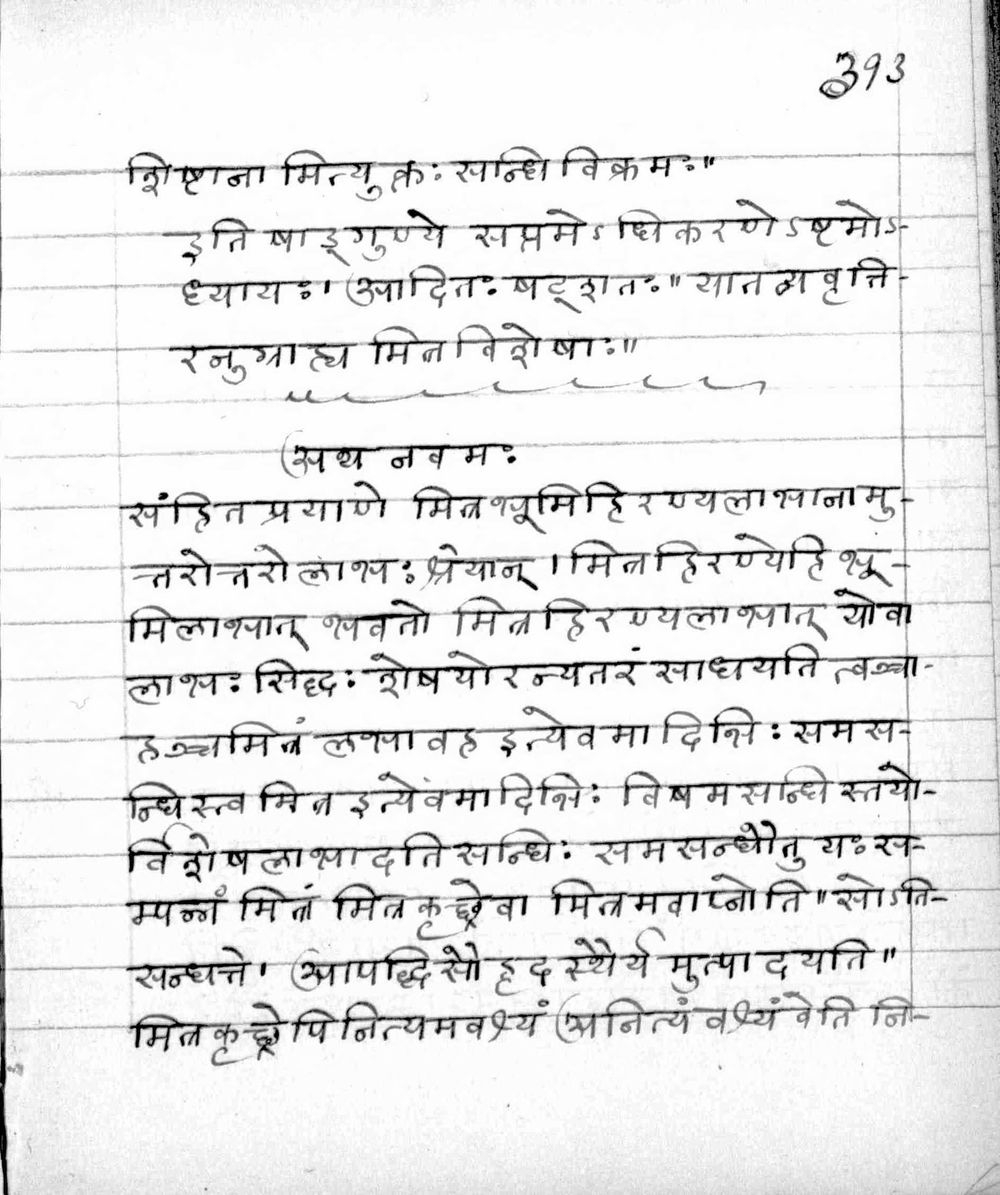 393
शिष्टाना मित्युक्तः सन्धि विक्रमः"
इति षाड्गुण्ये सप्तमेऽधिकरणेऽष्टमोऽ-
ध्यायः' आदितः षट्शतः" यातव्यवृत्ति-
रनुग्राह्य मित्रविशेषाः"
अथ नवमः
संहित प्रयाणे मित्रभूमिहिरण्यलाभानामु-
त्तरोत्तरो लाभः श्रेयान् । मित्रहिरण्येहि भू-
मिलाभात् भवतो मित्रहिरण्यलाभात् योवा
लाभः सिद्धः शेषयोरन्यतरं साधयति त्वञ्चा-
हञ्चमित्रं लभावह इत्येवमादिभिः समस-
न्धिस्त्वमित्र इत्येवंमादिभिः विषमसन्धिस्तयो-
र्विशेषलाभादतिसन्धिः समसन्धौतु यः स-
म्पन्नं मित्रं मित्रकृछ्रेवा मित्रमवाप्नोति" सोऽति-
सन्धत्ते' आपद्धि सौहृद स्थैर्य मुत्पादयति"
मित्रकृछ्रेपि नित्यमवश्यं अनित्यं वश्यं वेति नि-